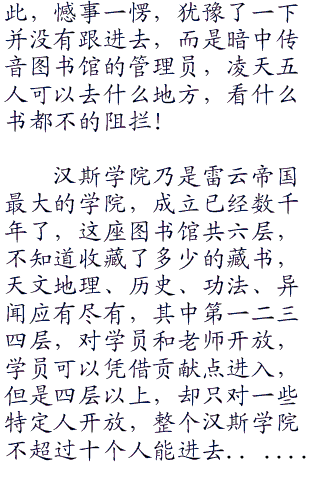 此，憾事一愣，犹豫了一下
并没有跟进去，而是暗中传
音图书馆的管理员，凌天五
人可以去什么地方，看什么
书都不的阻拦！
汉斯学院乃是雷云帝国
最大的学院，成立已经数千
年了，这座图书馆共六层，
不知道收藏了多少的藏书，
天文地理、历史、功法、异
闻应有尽有，其中第一二三
四层，对学员和老师开放，
学员可以凭借贡献点进入，
但是四层以上，却只对一些
特定人开放，整个汉斯学院
不超过十个人能进去．．．．．．